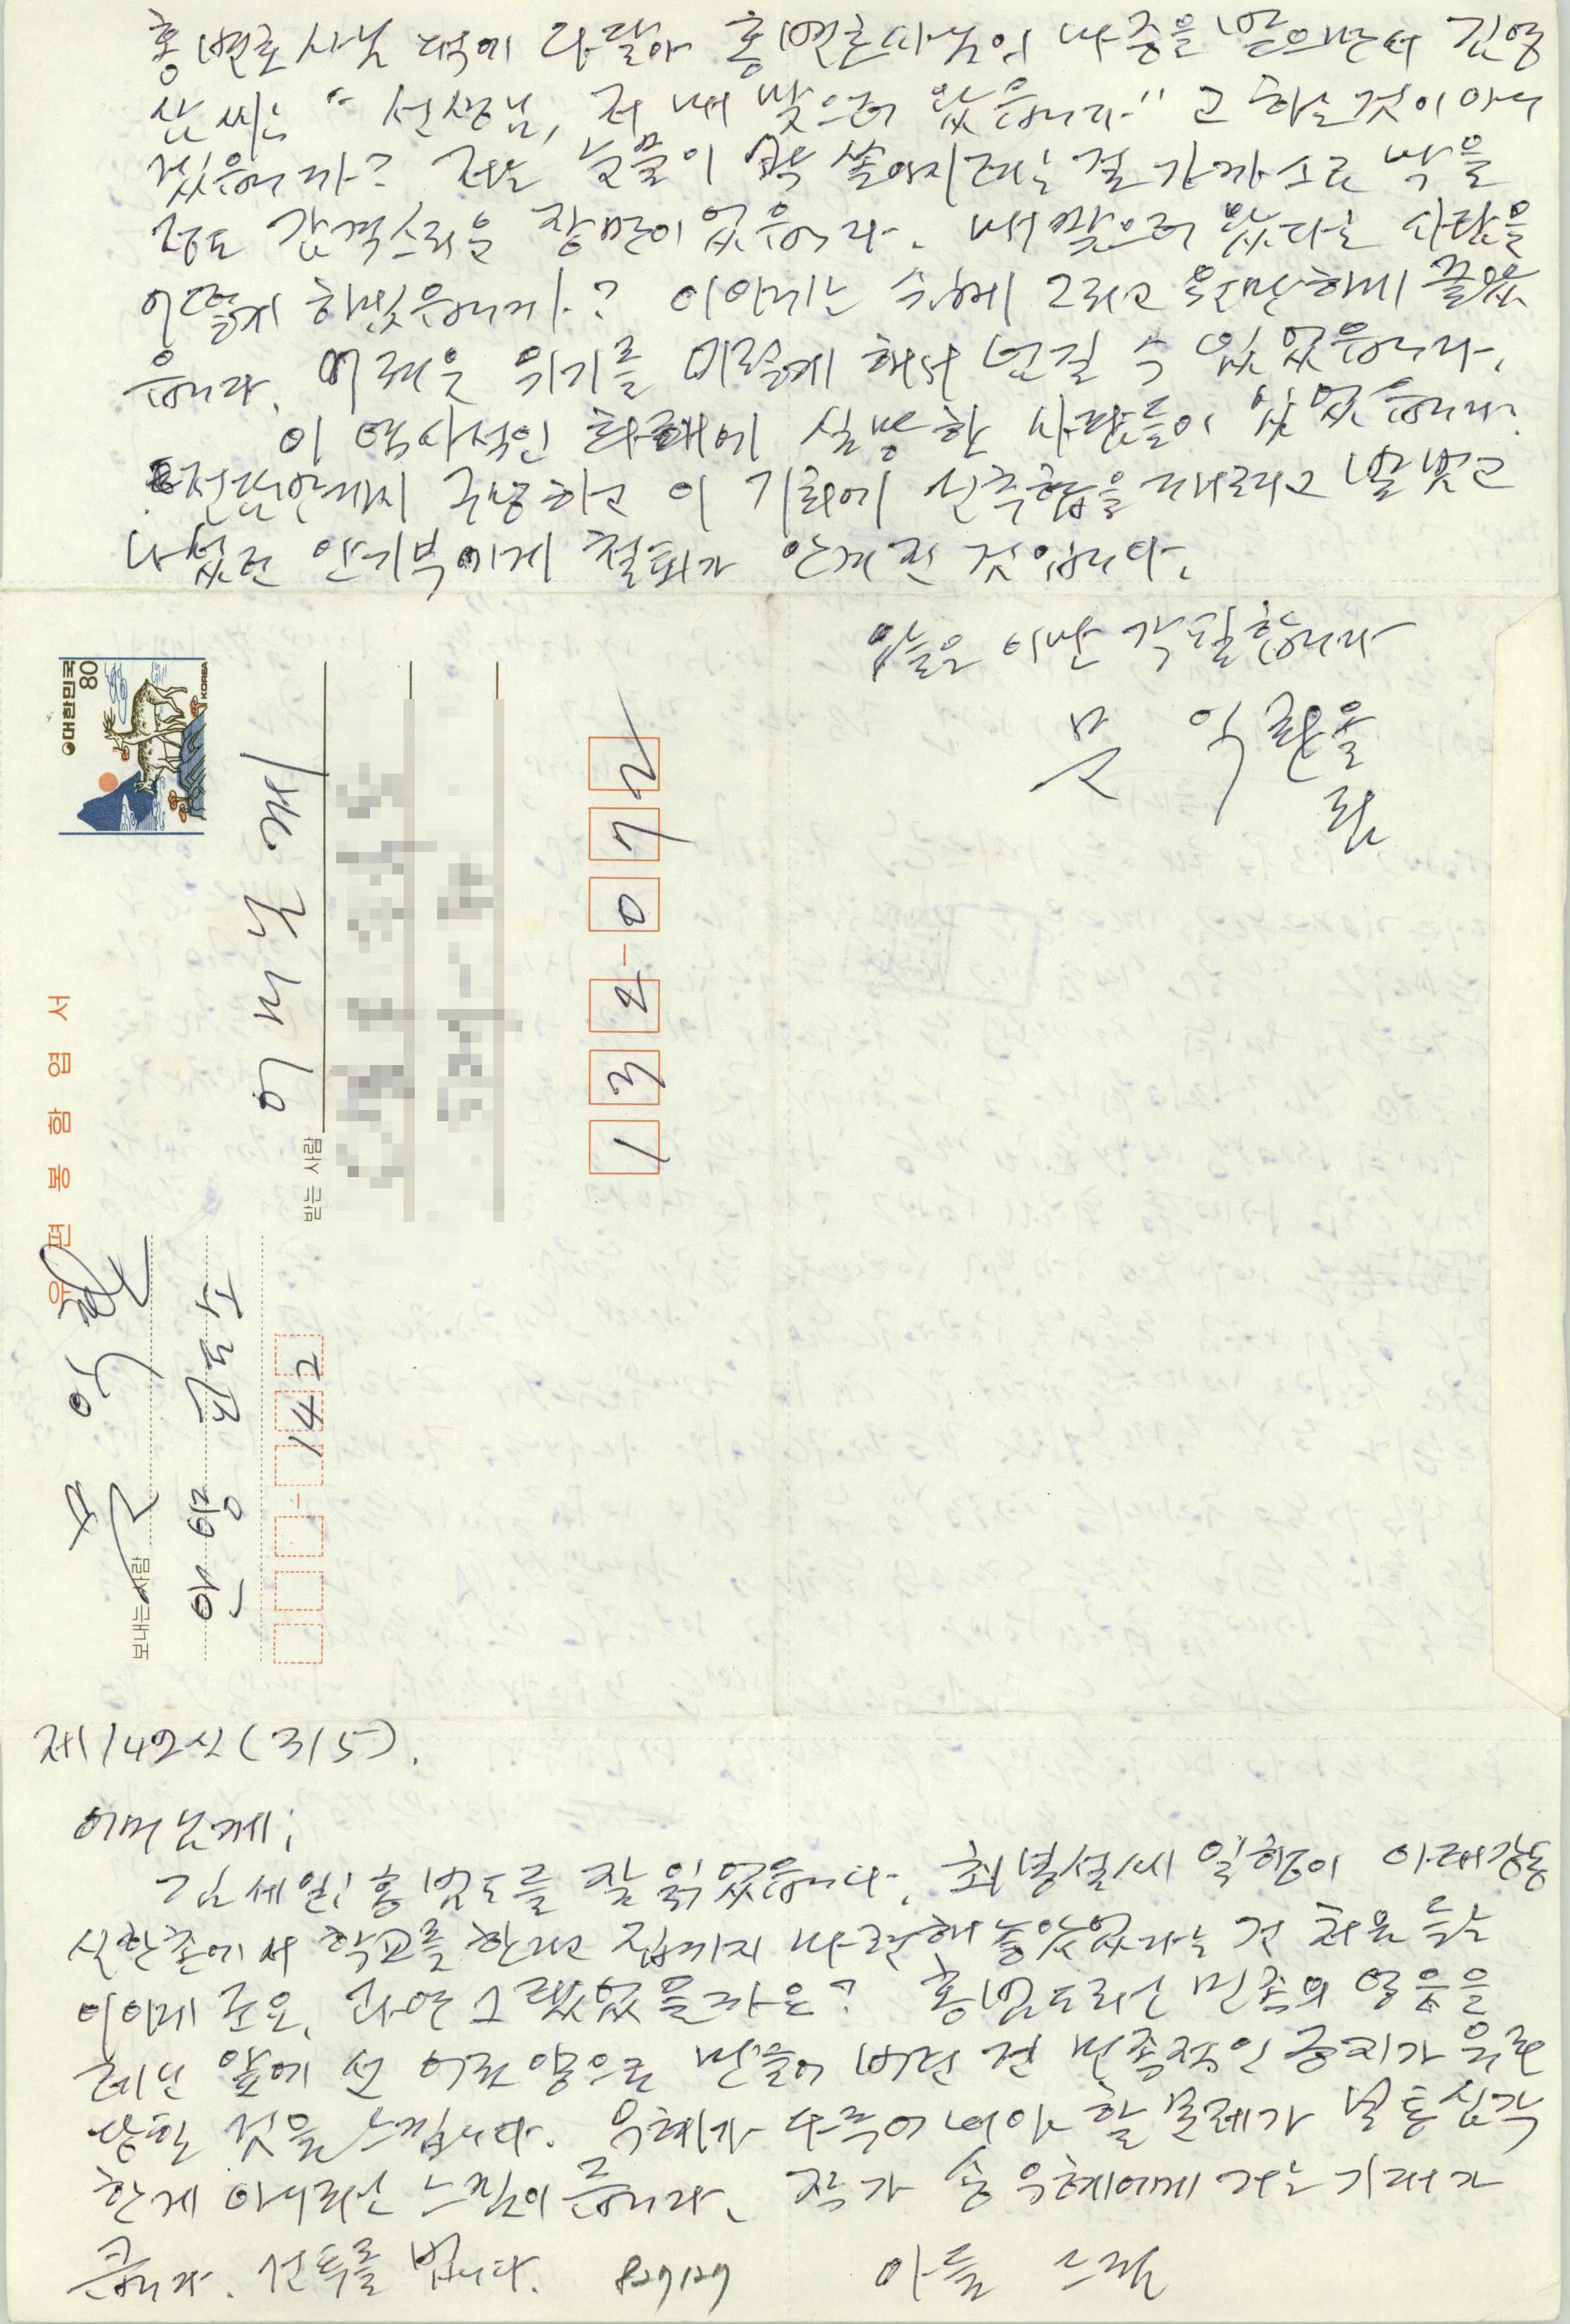 홍변호사님 댁에 다달아 홍변호사님의 마중을 받으면서 김영
삼씨는 "선생님, 저 매 맞으러 왔읍니다." 고 하는 것이 아니
겠읍니까? 저는 눈물이 왈칵 쏟아지려는 걸 가까스로 막을
정도 감격스러운 장면이었읍니다. 매 맞으러 왔다는 사람을
어떻게 하겠읍니까? 이야기는 속하게 그리고 원만하게 끝났
읍니다. 어려운 위기를 이렇게 해서 넘길 수 있었읍니다.
이 역사적인 화해에 실망한 사람들이 있었읍니다.
전남만까지 구성하고 이 기회에 신추협을 때리려고 발벗고
나섰던 안기부에게 철퇴가 안겨진 것입니다.
오늘은 이만 각필합니다
문 익환 올림
대한민국 KOREA 80
우편봉함엽서
보내는 사람
문 익환
안양 교도소
142
받는 사람
이 나
132-072
제142신 (3/5).
어머님께;
김세일; 홍범도를 잘 읽었읍니다. 최봉설씨 일행이 아래강동
신한촌에서 학교를 한다고 집까지 마련해 놓았었다는 건 처음 듣는
이야기군요. 과연 그랬었을까요? 홍범도라는 민족의 영웅을
레닌 앞에 선 어린 양으로 만들어 버린 건 민족적인 긍지가 유린
당한 것을 느낍니다. 욱혜가 다루어 내야 할 문제가 보통 심각
한게 아니라는 느낌이 듭니다. 작가 송욱혜에게 거는 기대가
큽니다. 선투를 빕니다. 아들 느림